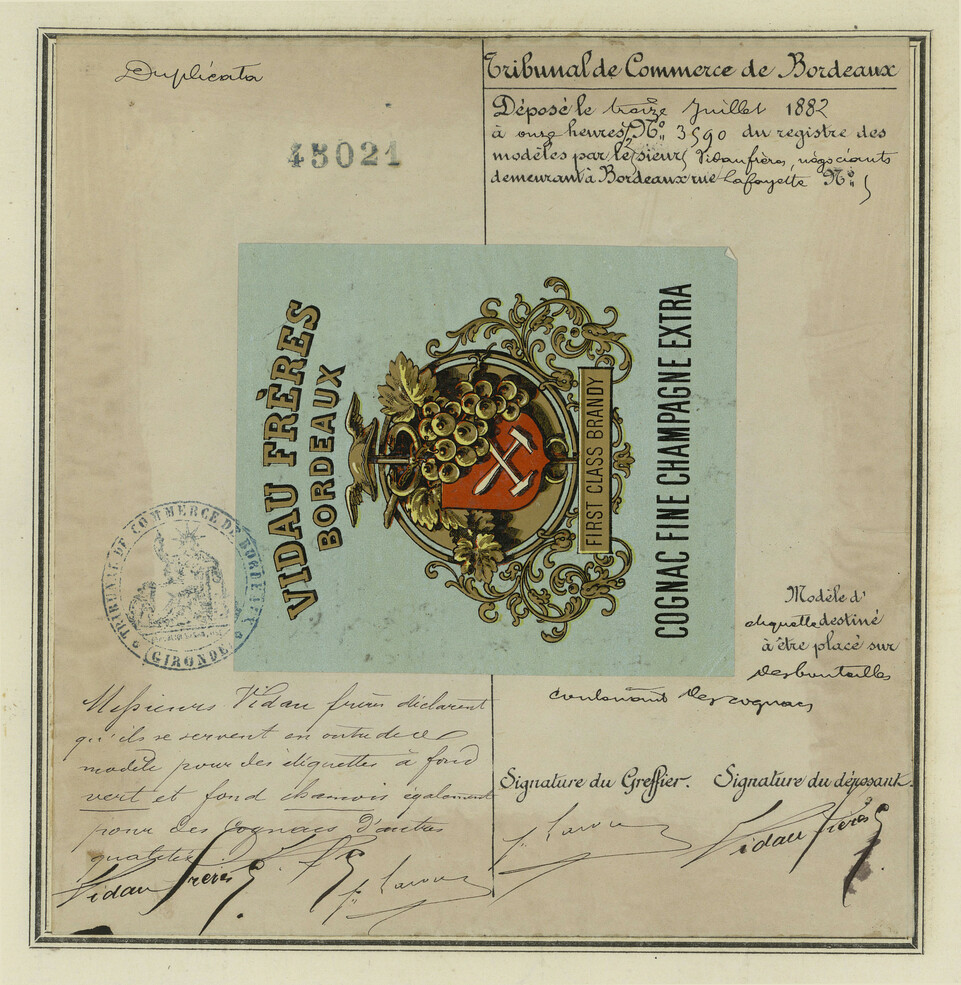 Duplicata
45021
Tribunal de Commerce de Bordeaux
Déposé le treize Juillet 1882
à onze heures, N° 3590 du registre des
modèles par les sieurs Vidau frères, négociants
demeurant à Bordeaux rue Lafayette N° 5
VIDAU FRÈRES
BORDEAUX
FIRST CLASS BRANDY
COGNAC FINE CHAMPAGNE EXTRA
TRIBUNAL DE COMMERCE DE BORDEAUX
GIRONDE
Modèle d'
étiquette destiné
à être placé sur
des bouteilles
contenant des cognacs
Messieurs Vidau frères déclarent
qu'ils se servent en outre de ce
modèle pour des étiquettes à fond
vert et fond chamois également
pour des cognacs d'autres
qualités.
Signature du Greffier. Signature du déposant.
Vidau frères
Vidau frères